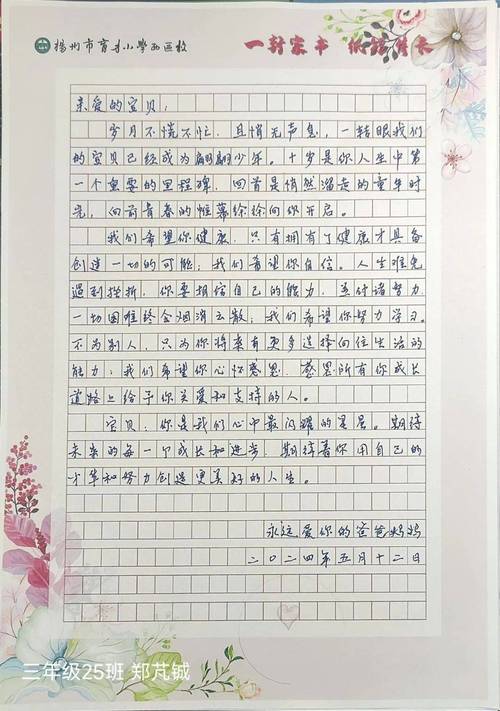 扬州市育才小学西区校 一封家书 纸短情长
亲爱的宝贝：
岁月不慌不忙，且悄无声息，一转眼我们
的宝贝已经成为翩翩少年。十岁是你人生中第
一个重要的里程碑，回首是悄然溜走的童年时
光，向前青春的帷幕徐徐向你开启。
我们希望你健康，只有拥有了健康才具备
创造一切的可能；我们希望你自信。人生难免
遇到挫折，你要相信自己的能力，并付诸努力，
一切困难终会烟消云散；我们希望你努力学习。
不为别人，只为你将来有更多选择向往生活的
能力；我们希望你心怀感恩。感恩所有你成长
道路上给予你关爱和支持的人。
宝贝，你是我们心中最闪耀的星辰。期待
未来的每一个成长和进步，期待着你用自己的
才华和努力创造更美好的人生。
永远爱你的爸爸妈妈
二〇二四年五月十二日
三年级25班 郑芃铖